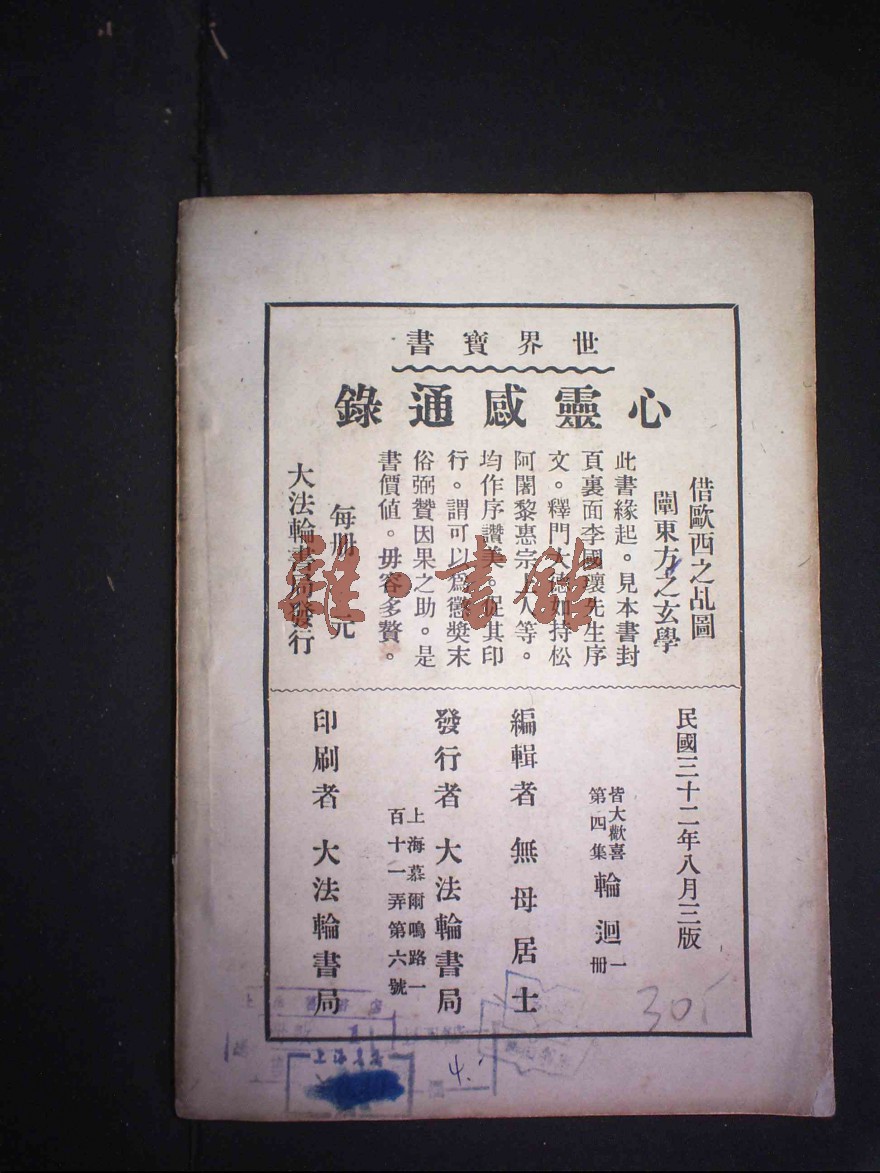 世界寶書
心靈感通錄
借歐西之乩圖
闡東方之玄學
此書緣起。見本書封
頁裏面李國瓌先生序
文。釋門大德如持松
阿闍黎惠宗上人等。
均作序讚美。促其印
行。謂可以爲懲獎末
俗弼贊因果之助。是
書價値。毋容多贅。
每册 元
大法輪書局發行
民國三十二年八月三版
皆大歡喜
第四集
輪迴
一册
編輯者 無母居士
發行者 大法輪書局
上海慕爾鳴路一
百十一弄第六號
印刷者 大法輪書局
雜·書館
30
4.